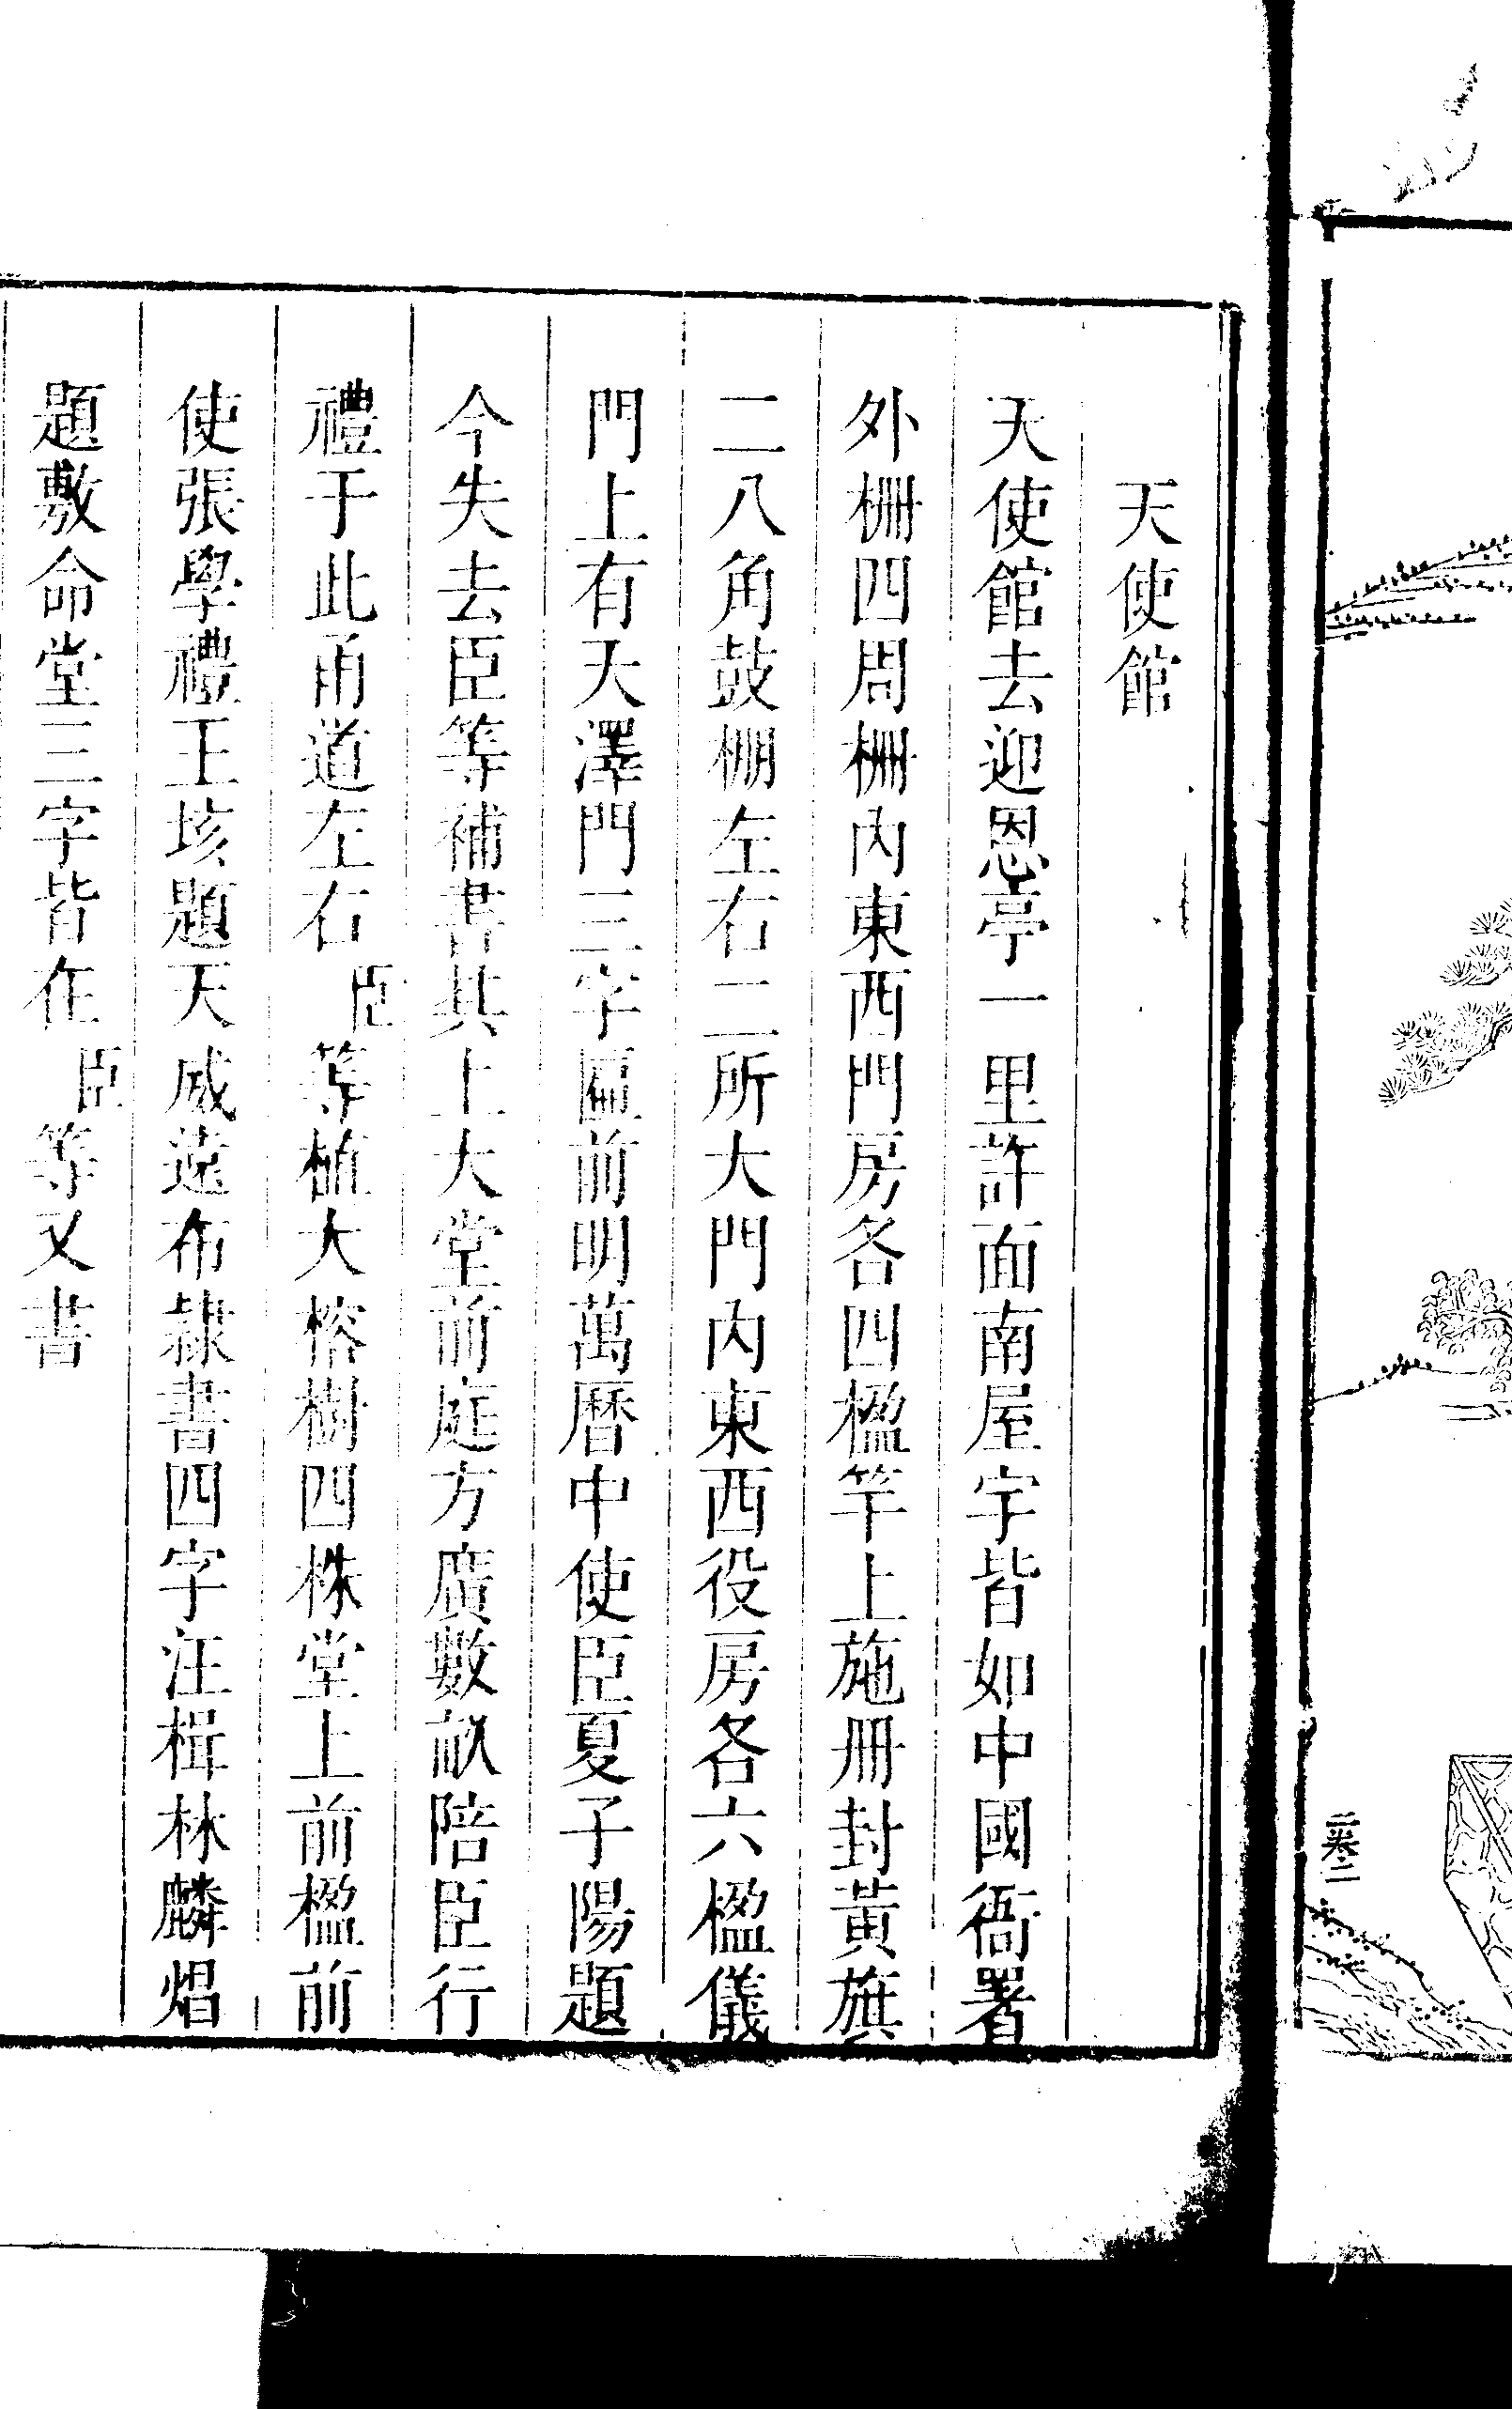 天使館
天使館去迎恩亭一里許面南屋宇皆如中國衙署
外柵四周柵內東西門房各四楹竿上施冊封黃旗
二八角鼓棚左右二所大門內東西役房各六楹儀
門上有天澤門三字匾前明萬曆中使臣夏子陽題
今失去臣等補書其上大堂前庭方廣數畝陪臣行
禮于此甬道左右臣等植大榕樹四株堂上前楹前
使張學禮王垓題天威遠布隸書四字汪楫林麟焻
題敷命堂三字皆在臣等又書
卷二